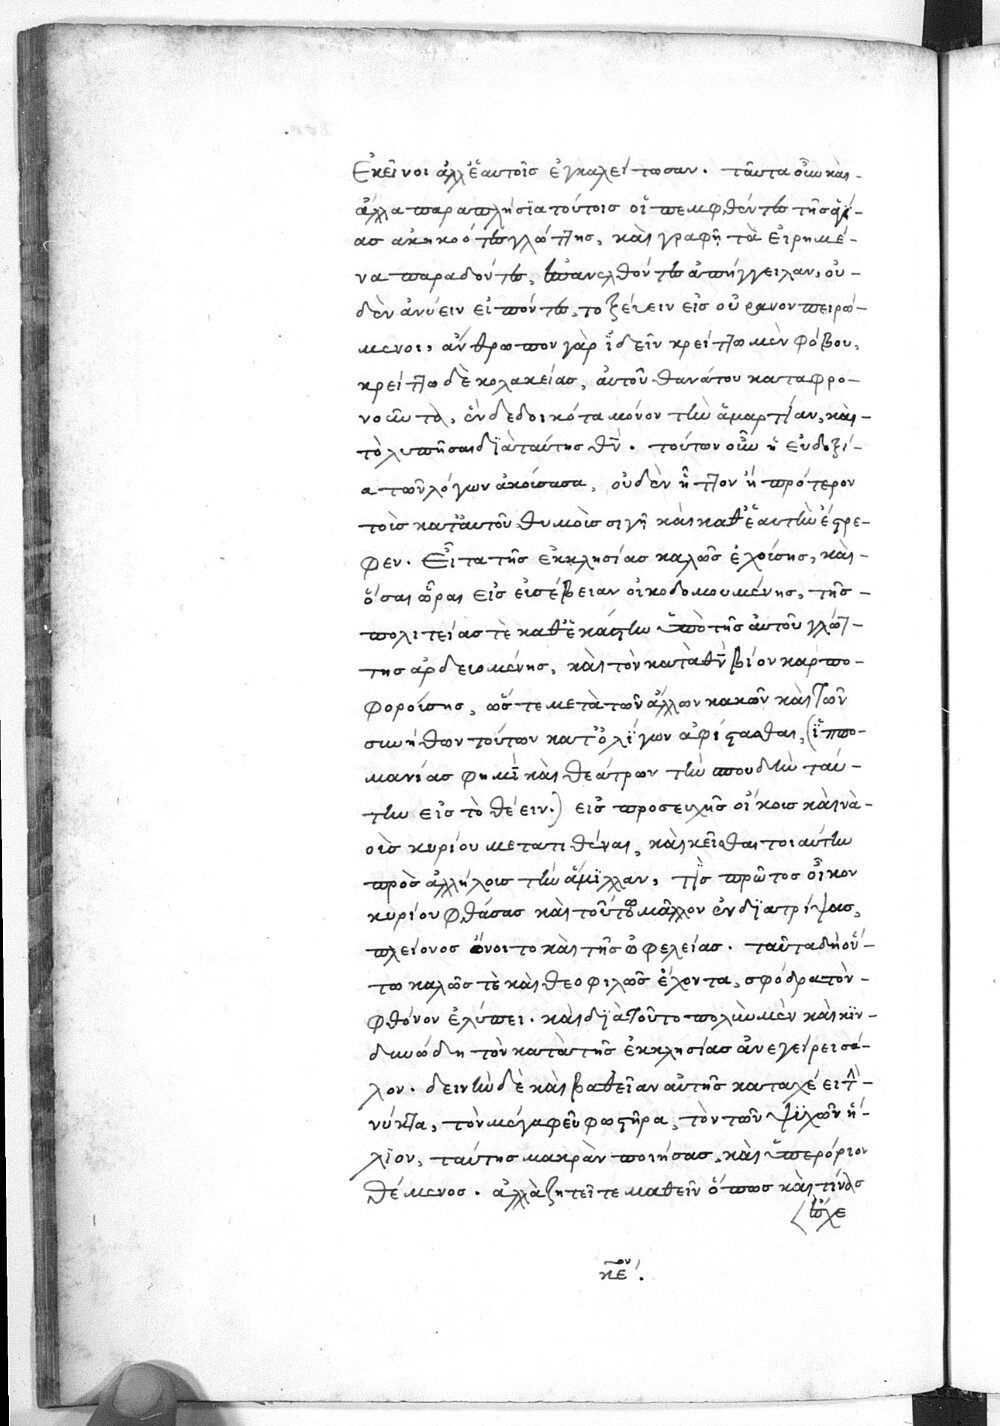 Ἐκεῖνοι ἀλλ' ἑαυτοῖς ἐγκαλείτωσαν. ταῦτα οὖν καὶ
ἄλλα παραπλήσϊα τούτοις οἱ πεμφθέντες τῆς ἁγί-
ας ἀκηκοότες γλώττης, καὶ γραφῇ τὰ εἰρημέ-
να παραδόντες, ἐπανελθόντες ἀπήγγειλαν, οὐ-
δὲν ἀνύειν εἰπόντες, τοξεύειν εἰς οὐρανον πειρώ-
μενοι, ἄνθρωπον γὰρ ἰδεῖν κρείττω μὲν φόβου,
κρείττω δὲ κολακείας, αὐτοῦ θανάτου καταφρο-
νοῦντα, ἓν δεδοικότα μόνον τὴν ἁμαρτίαν, καὶ
τὸ λυπῆσαι δϊὰ ταύτης θν̄. τούτων οὖν ἡ Εὐδοξί-
α τῶν λόγων ἀκούσασα, οὐδὲν ἧττον ἢ πρότερον
τοῖς κατ' αὐτοῦ θυμοῖς σιγῇ καὶ καθ' ἑαυτὴν ἔτρε-
φεν. Εἶτα τῆς ἐκκλησίας καλῶς ἐχούσης, καὶ
ὅσαι ὧραι εἰς εὐσέβειαν οἰκοδομουμένης, τῆς
πολιτείας τὲ καθ' ἑκάστην ὑπὸ τῆς αὐτοῦ γλώτ-
της ἀρδευομένης, καὶ τὸν κατὰ θν̄ βίον καρπο-
φορούσης, ὥστε μετὰ τῶν ἄλλων κακῶν καὶ τῶν
συνήθων τούτων κατ' ὀλίγων ἀφίστασθαι, (ἱππο-
μανίας φημὶ καὶ θεάτρων τὴν σπουδὴν ταύ-
την εἰς τὸ θέειν.) εἰς προσευχῆς οἴκοις καὶ να-
οῖς κυρίου μετατιθέναι, κἀκεῖθαι τοιαύτην
πρὸς ἀλλήλοις τὴν ἅμιλλαν, τίς πρῶτος οἶκον
κυρίου φθάσας καὶ τούτου μᾶλλον ἐνδϊατρίψοις,
πλείονος ὄνοιτο καὶ τῆς ὠφελείας. ταῦτα δὴ οὕ-
τω καλῶς τὲ καὶ θεοφιλῶς ἔχοντα, σφόδρα τὸν
φθόνον ἐλύπει. καὶ δϊὰ τοῦτο πολὺν μὲν καὶ κϊν-
δυνώδη τὸν κατὰ τῆς ἐκκλησίας ἀνεγείρει σά-
λον. δεινὴν δὲ καὶ βαθεῖαν αὐτῆς καταχέει τὴν
νύκτα, τὸν μέγα φεῦ φωστῆρα, τὸν τῶν ψϋχῶν ἥ-
λϊον, ταύτης μακρὰν ποιήσας, καὶ ὑπερόριον
θέμενος. ἀλλὰ ζητεῖτε μαθεῖν ὅπως καὶ τίνας
ἔσχε
κεˊ.